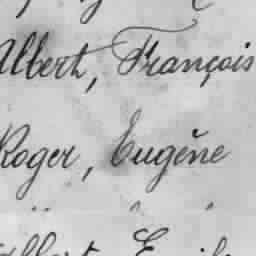 Albert, François
Roger, Eugène